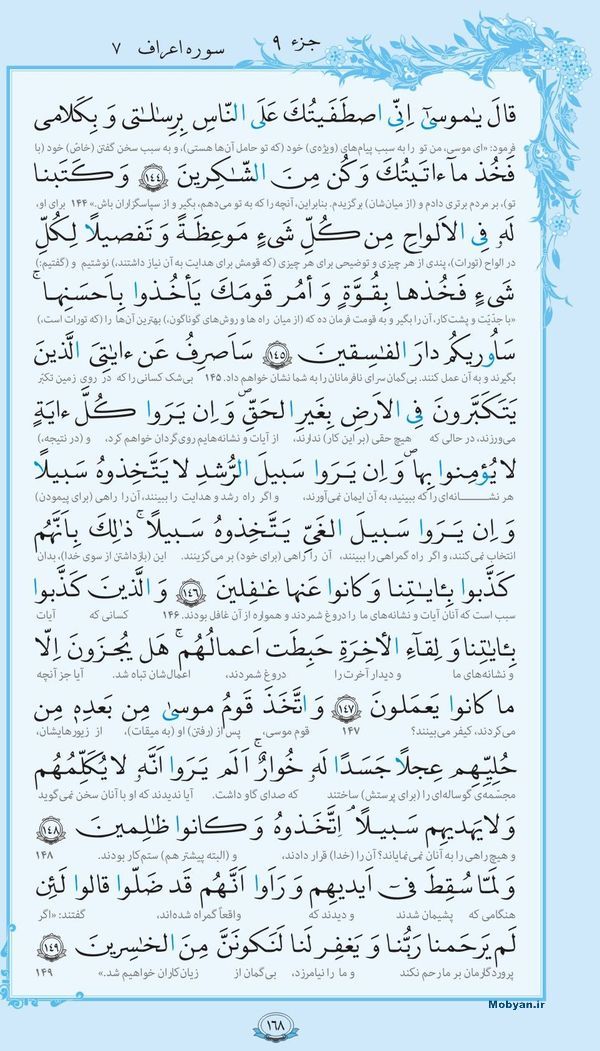 جزء ۹
سوره اعراف ۷
قالَ یٰموسیٰٓ اِنِّی اصطَفَیتُكَ عَلَی النّاسِ بِرِسٰلٰتی وَ بِکَلامی
فرمود: «ای موسی، من تو را به سبب پیام‌های (ویژه‌ی) خود (که تو حامل آن‌ها هستی)، و به سبب سخن گفتن (خاصّ) خود (با
فَخُذ مآ ءاتَیتُكَ وَ کُن مِنَ الشّٰاکِرینَ ﴿١٤٤﴾ وَ کَتَبنا
تو)، بر مردم برتری دادم و (از میان‌شان) برگزیدم. بنابراین، آنچه را که به تو می‌دهم، بگیر و از سپاسگزاران باش.» ۱۴۴ برای او،
لَهٗ فِی الاَلواحِ مِن کُلِّ شَیءٍ مَوعِظَةً وَ تَفصیلًا لِکُلِّ
در الواح (تورات)، پندی از هر چیزی و توضیحی برای هر چیزی (که قومش برای هدایت به آن نیاز داشتند،) نوشتیم و (گفتیم:)
شَیءٍ فَخُذها بِقُوَّةٍ وَ أمُر قَومَكَ یَأخُذوا بِاَحسَنِها ۚ
«با جدّیّت و پشت‌کار، آن را بگیر و به قومت فرمان ده که (از میان راه ها و روش‌های گوناگون،) بهترین آن‌ها را (که تورات است،)
سَاُوریکُم دارَ الفٰسِقینَ ﴿١٤٥﴾ سَاَصرِفُ عَن ءایٰتِیَ الَّذینَ
بگیرند و به آن عمل کنند. بی‌گمان سرای نافرمانان را به شما نشان خواهم داد. ۱۴۵ بی‌شک کسانی را که در روی زمین تکبّر
یَتَکَبَّرونَ فِی الاَرضِ بِغَیرِ الحَقِّ ۖ وَ اِن یَرَوا کُلَّ ءایَةٍ
می‌ورزند، در حالی که هیچ حقی (بر این کار) ندارند، از آیات و نشانه‌هایم روی‌گردان خواهم کرد، و (در نتیجه،)
لا یُؤمِنوا بِها ۖ وَ اِن یَرَوا سَبیلَ الرُّشدِ لا یَتَّخِذوهُ سَبیلًا
هر نشـــانه‌ای را که ببینید، به آن ایمان نمی‌آورند، و اگر راه رشد و هدایت را ببینند، آن را راهی (برای پیمودن)
وَ اِن یَرَوا سَبیلَ الغَیِّ یَتَّخِذوهُ سَبیلًا ۚ ذٰلِكَ بِاَنَّهُم
انتخاب نمی‌کنند، و اگر راه گمراهی را ببینند، آن را راهی (برای خود) بر می‌گزینند. این (بازداشتن از سوی خدا)، بدان
کَذَّبوا بِـایٰتِنا وَ کانوا عَنها غٰفِلینَ ﴿١٤٦﴾ وَ الَّذینَ کَذَّبوا
سبب است که آنان آیات و نشانه‌های ما را دروغ شمردند و همواره از آن غافل بودند. ۱۴۶ کسانی که آیات
بِـایٰتِنا وَ لِقآءِ الأخِرَةِ حَبِطَت اَعمالُهُم ۚ هَل یُجزَونَ اِلّا
و نشانه‌های ما و دیدار آخرت را دروغ شمردند، اعمال‌شان تباه شد. آیا جز آنچه
ما کانوا یَعمَلونَ ﴿١٤٧﴾ وَ اتَّخَذَ قَومُ موسیٰ مِن بَعدِهٖ مِن
می‌کردند، کیفر می‌بینند؟ ۱۴۷ قوم موسی، پس از (رفتن) او (به میقات)، از زیورهایشان،
حُلِیِّهِم عِجلًا جَسَدًا لَهٗ خُوارٌ ۚ اَلَم یَرَوا اَنَّهٗ لا یُکَلِّمُهُم
مجسّمه‌ی گوساله‌ای را (برای پرستش) ساختند که صدای گاو داشت. آیا ندیدند که او با آنان سخن نمی‌گوید
وَ لا یَهدیهِم سَبیلًا ۘ اتَّخَذوهُ وَ کانوا ظٰلِمینَ ﴿١٤٨﴾
و هیچ راهی را به آنان نمی‌نمایاند؟ آن را (خدا) قرار دادند، و (البته پیشتر هم) ستم‌کار بودند. ۱۴۸
وَ لَمّا سُقِطَ فیٓ اَیدیهِم وَ رَاَوا اَنَّهُم قَد ضَلّوا قالوا لَئِن
هنگامی که پشیمان شدند و دیدند که واقعاً گمراه شده‌اند، گفتند: «اگر
لَم یَرحَمنا رَبُّنا وَ یَغفِر لَنا لَنَکونَنَّ مِنَ الخٰسِرینَ ﴿١٤٩﴾
پروردگارمان بر ما رحم نکند و ما را نیامرزد، بی‌گمان از زیان‌کاران خواهیم شد.» ۱۴۹
Mobyan.ir
۱۶۸